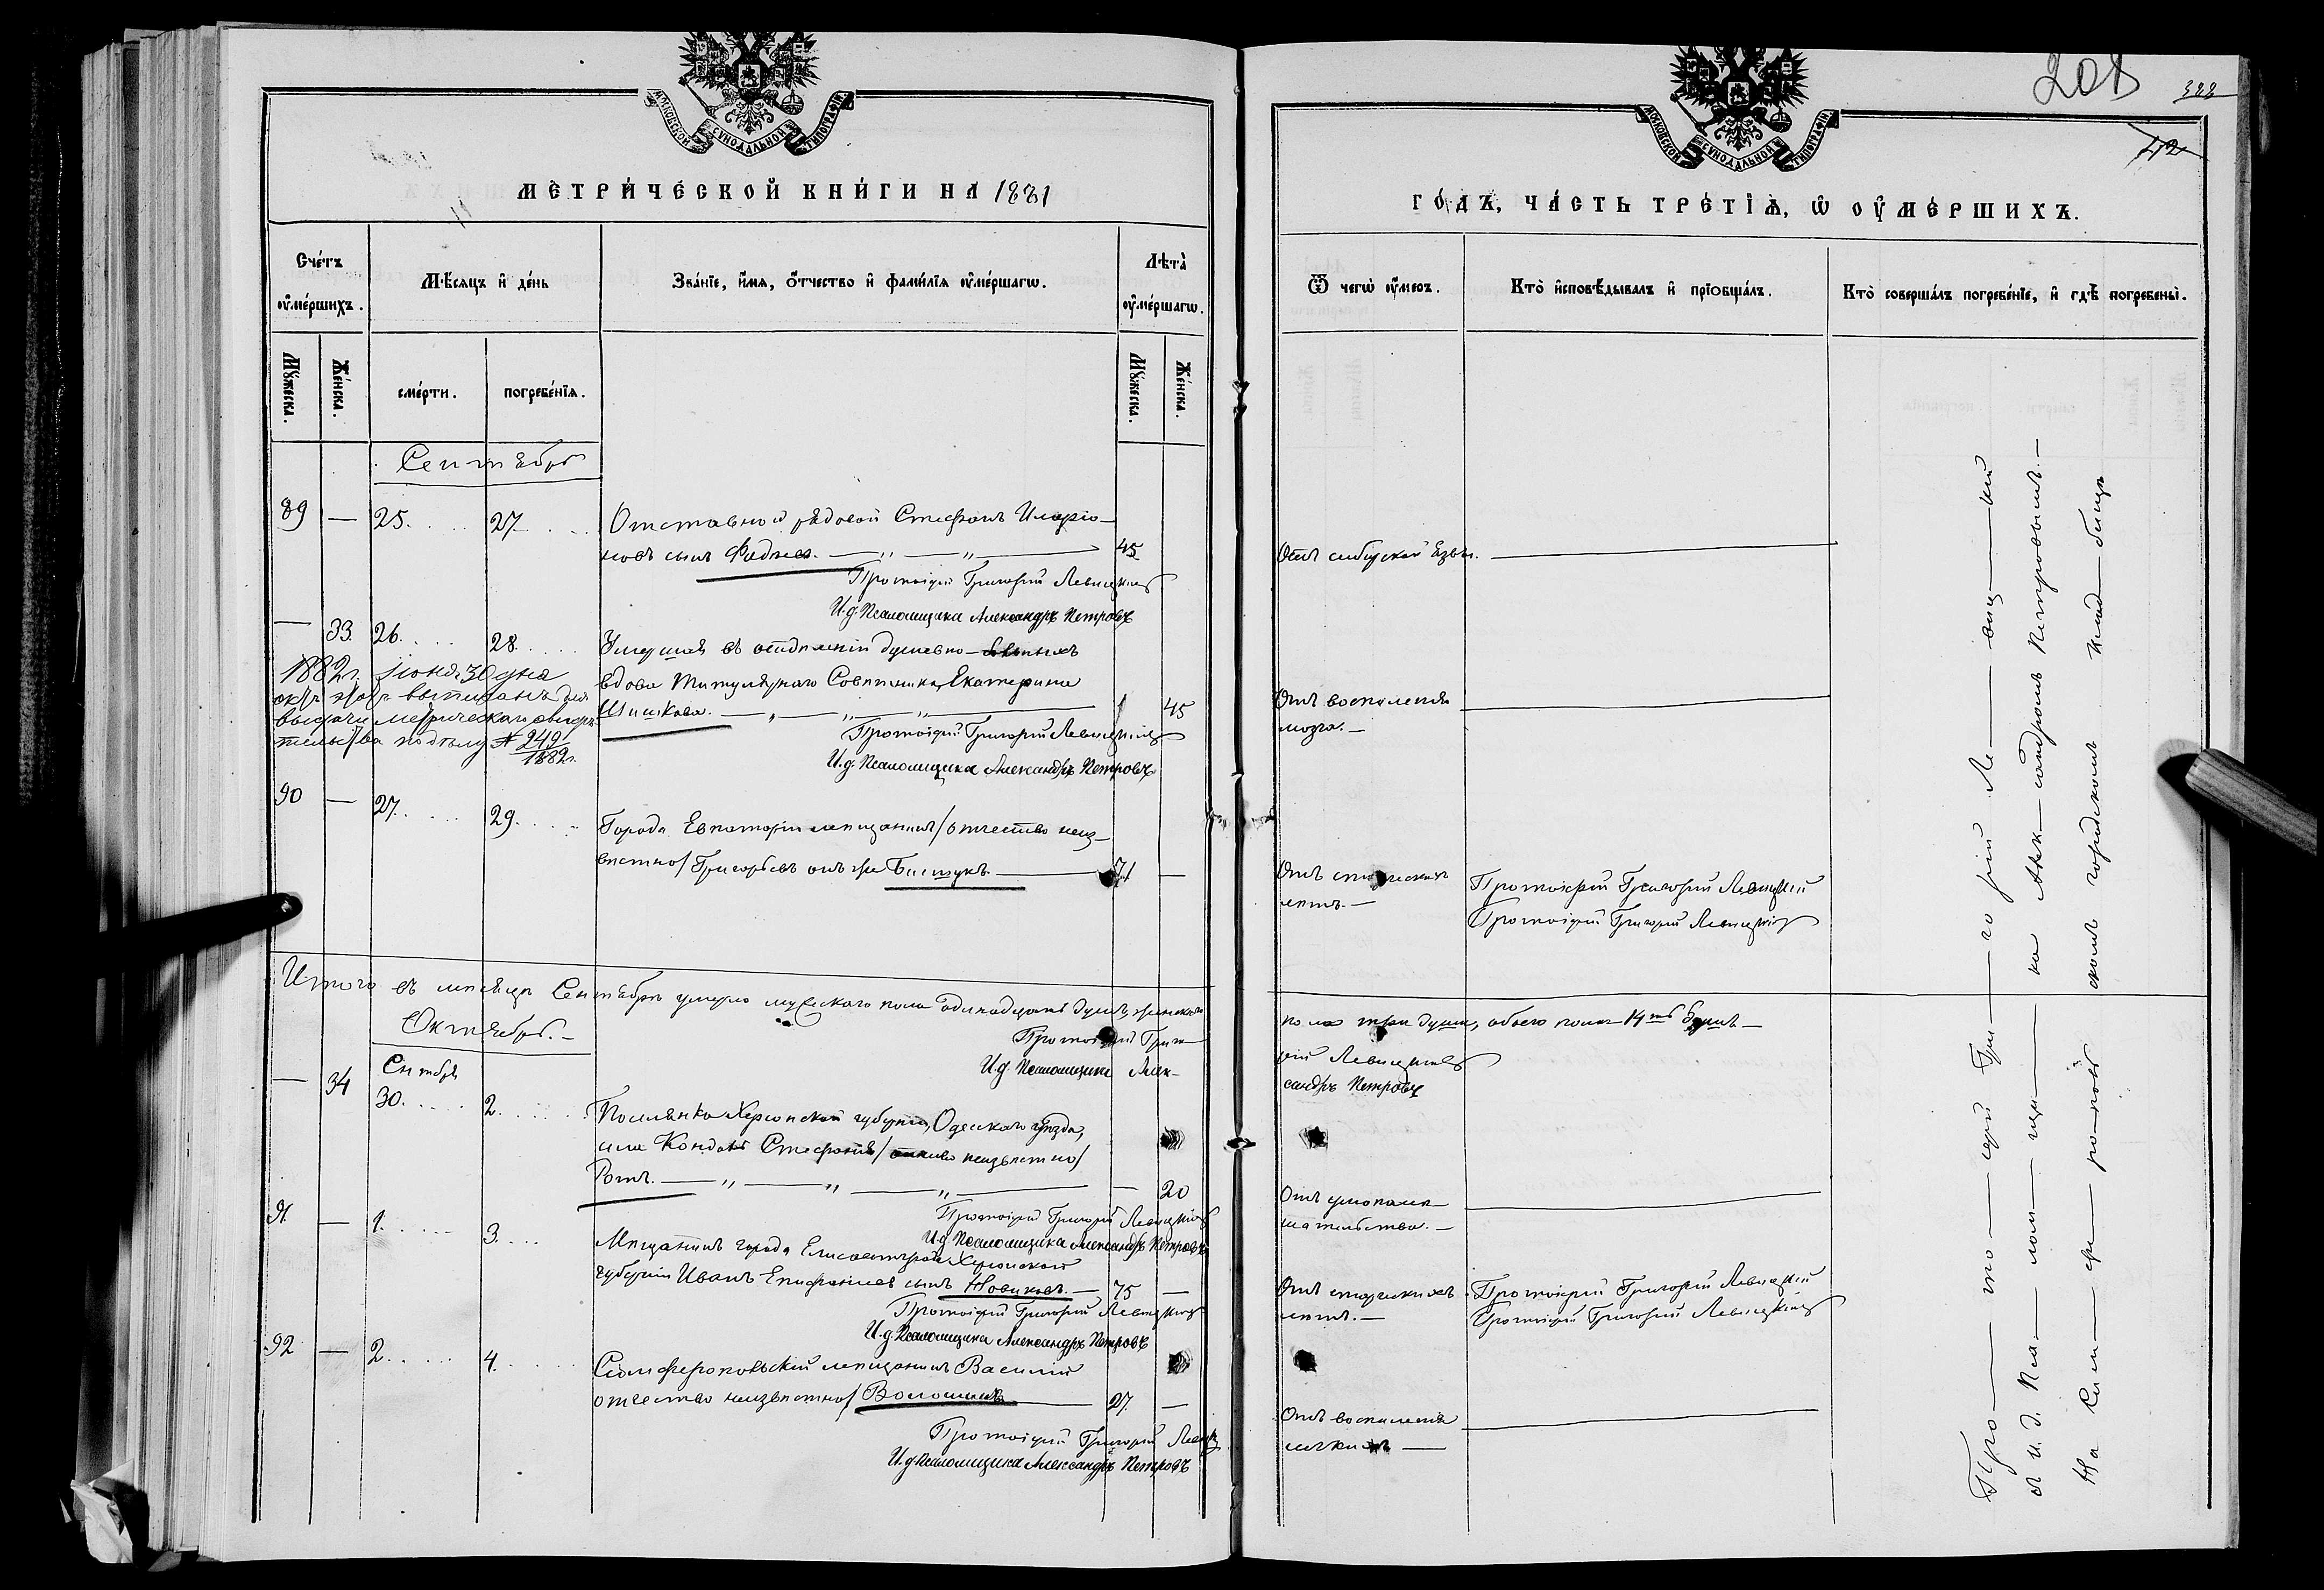 МОСКОВСКОЙ СУНОДАЛЬНОЙ ТИПОГРАФІИ
МЕТРИ́ЧЕСКОЙ КНИ́ГИ НА 1881
Сче́тъ ᲂу҆ме́ршихъ.
Мѣ́сяцъ и҆ де́нь
Зва́нїе, и҆́мя, ѻ҆́тчество и҆ фами́лїя ᲂу҆ме́ршагѡ.
Лѣта̀ ᲂу҆ме́ршагѡ.
Мꙋ́жеска.
Же́нска.
сме́рти.
погребе́нїя.
Мꙋ́жеска.
Же́нска.
Сентябрь
89 — 25. 27. Отставной рядовой Стефанъ Иларіо-
новъ сынъ Фадѣев. 45
Протоіерей Григорій Левицкій
И.д. Псаломщика Александръ Петровъ
— 33. 26. 28. Умершая въ отдѣленіи душевно-больныхъ
вдова Титулярнаго Совѣтника Екатерина
Шишкова. 45
Протоіерей Григорій Левицкій
И.д. Псаломщика Александръ Петровъ
1882г. Іюня 30 дня
выписанъ для
выдачи метрическаго свидѣ-
тельства по дѣлу № 249
1882г.
90 — 27. 29. Города Евпаторіи мѣщанинъ /отчество неиз-
вѣстно/ Григорьевъ онъ же 71 —
Итого въ мѣсяцѣ Сентябрѣ умерло мужескаго пола одинадцать душъ, женскаго
Октябрь.
Протоіерей Григо-
И.д. Псаломщика Алек-
— 34 Сентября
30. 2. Поселянка Херсонской губерніи, Одесскаго уѣзда,
Стефанія / неизвѣстно/
Ротъ. — 20
Протоіерей Григорій Левицкій
И.д. Псаломщика Александръ Петровъ
91. — 1. 3. Мѣщанинъ города Елисаветграда Херсонской
губерніи Иванъ Епифаніевъ сынъ Новиковъ. 75 —
Протоіерей Григорій Левицкій
И.д. Псаломщика Александръ Петровъ
92 — 2. 4. Симферопольскій мѣщанинъ Василій
отчество неизвѣстно/ Волошинъ 27. —
Протоіерей Григорій Левиц
И.д. Псаломщика Александръ Петровъ
208
322
МОСКОВСКОЙ СУНОДАЛЬНОЙ ТИПОГРАФІИ
ГО́ДЪ, ЧА́СТЬ ТРЕ́ТІѦ, Ѡ҆ ОУ҆МЕ́РШИХЪ.
Ѿ чегѡ̀ ᲂу҆́меръ.
Кто̀ и҆сповѣ́дывалъ и҆ прїобща́лъ.
Кто̀ соверша́лъ погребе́нїе, и҆ гдѣ̀ погребены̀.
Отъ сибирской язвы.
Отъ воспаленія
мозга.
Отъ старческихъ
лѣтъ.
Протоіерей Григорій Левицкій
Протоіерей Григорій Левицкій
пола три души, обоего пола 14ть душъ —
рій Левицкій
сандръ Петровъ
Отъ умопомѣ-
шательства.
Отъ старческихъ
лѣтъ.
Протоіерей Григорій Левицкій
Протоіерей Григорій Левицкій
Отъ воспаленія
легкихъ
Про — то — ерей Гри — го рій Ле — виц — кій
и и. д. Пса — лом — щи — ка Алек — сандромъ Петровымъ. —
На Сим — фе — ро — поль скомъ городскомъ клад — бищѣ